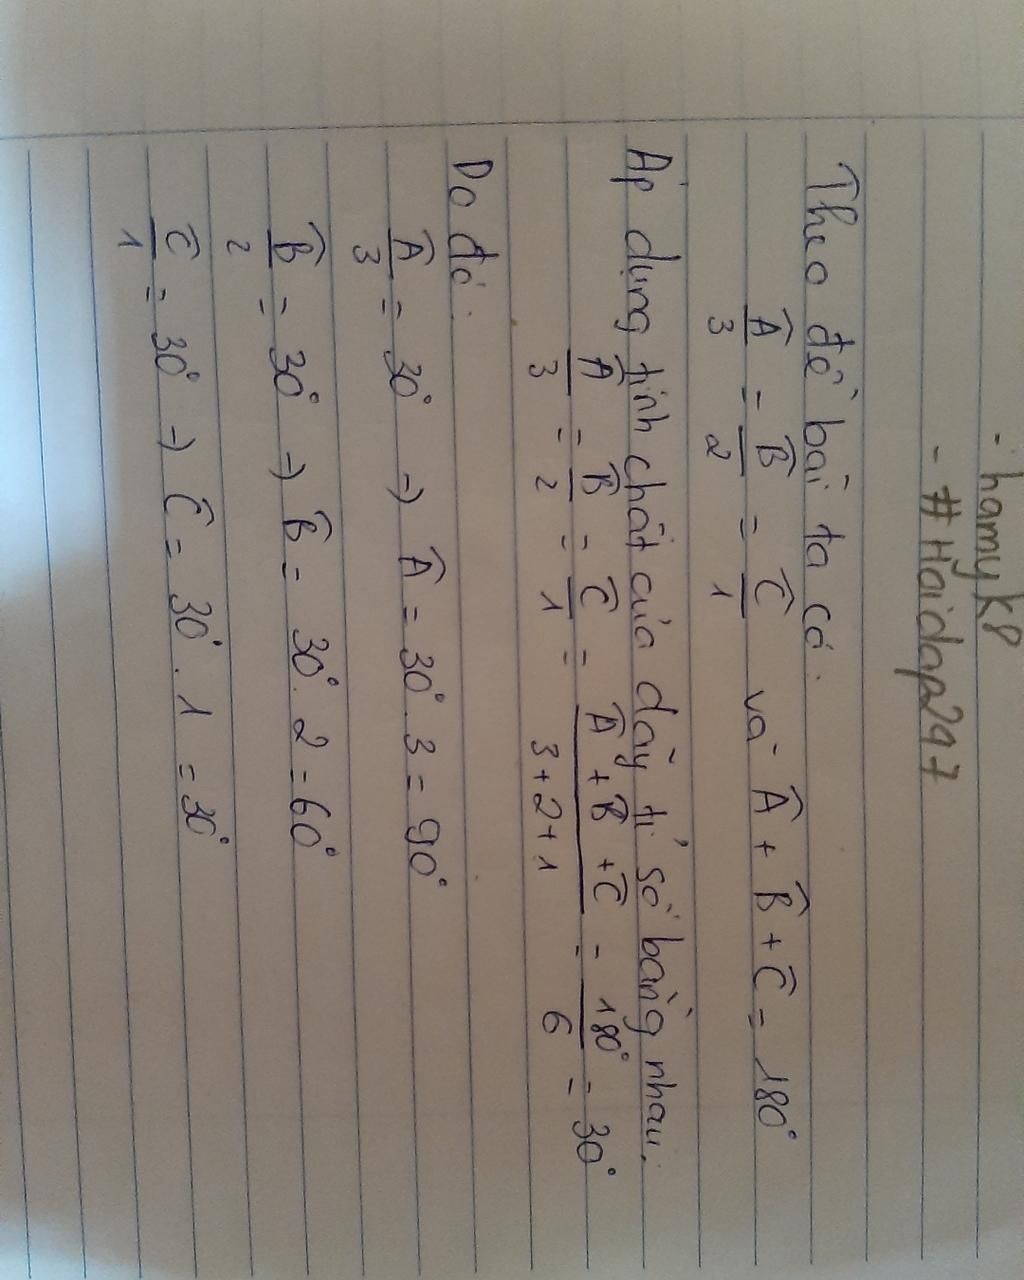 - hamyk8
- #Hoidap247
Theo đề bài ta có:
Â/3 = B̂/2 = Ĉ/1 và Â + B̂ + Ĉ = 180°
Áp dụng tính chất của dãy tỉ số bằng nhau:
Â/3 = B̂/2 = Ĉ/1 = (Â + B̂ + Ĉ)/(3+2+1) = 180°/6 = 30°
Do đó:
Â/3 = 30° → Â = 30°.3 = 90°
B̂/2 = 30° → B̂ = 30°.2 = 60°
Ĉ/1 = 30° → Ĉ = 30°.1 = 30°